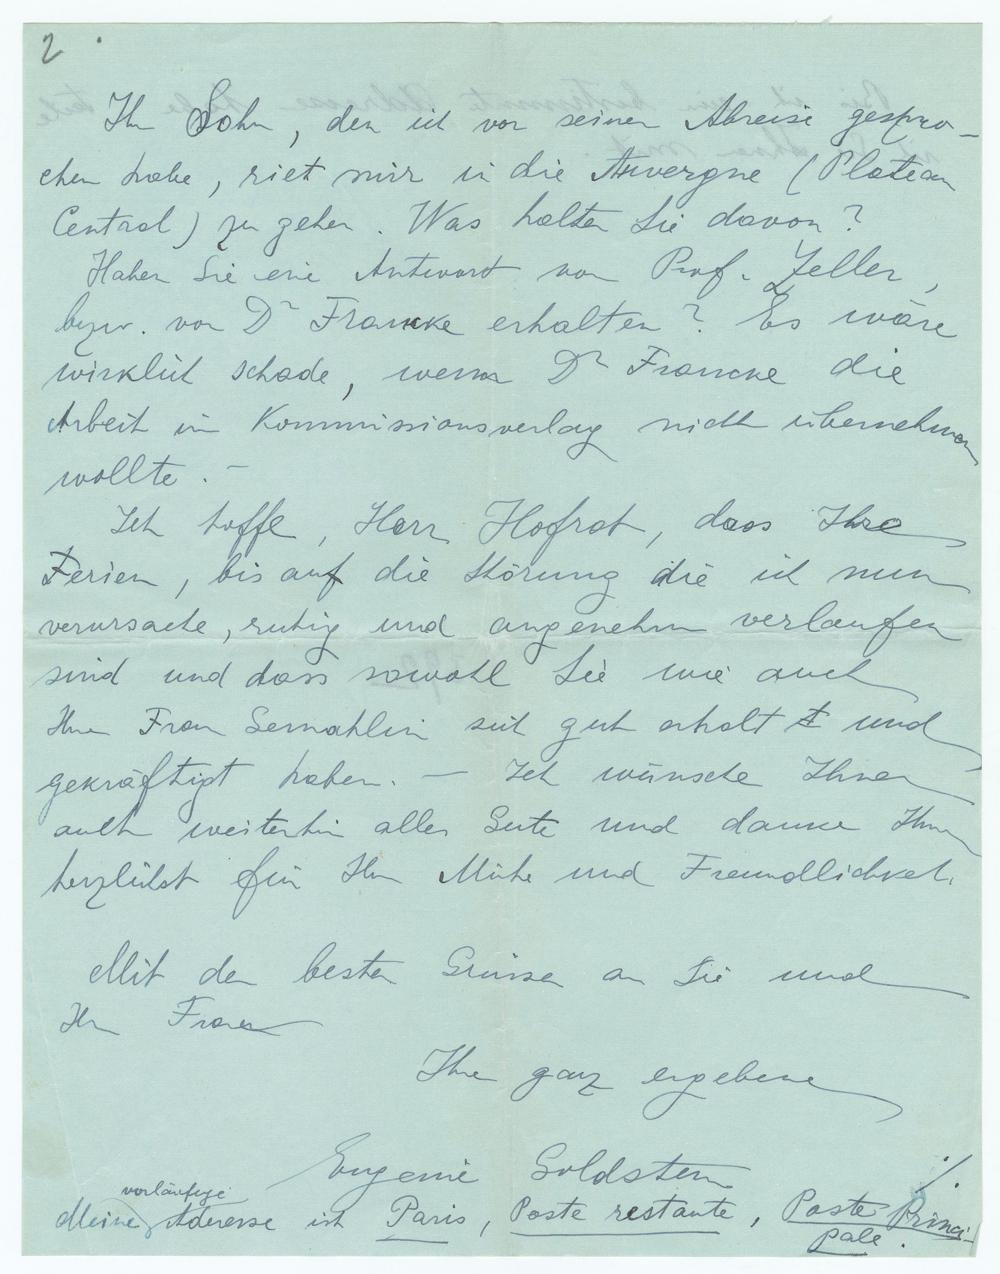 2
Ihr Sohn, den ich vor seiner Abreise gespro-
chen habe, riet mir in die Auvergne (Plateau
Central) zu gehen. Was halten Sie davon?
Haben Sie eine Antwort von Prof. Zeller,
bezw. von Dr Francke erhalten? Es wäre
wirklich schade, wenn Dr Francke die
Arbeit in Kommissionsverlag nicht übernehmen
wollte. –
Ich hoffe, Herr Hofrat, dass Ihre
Ferien, bis auf die Störung die ich nun
verursache, ruhig und angenehm verlaufen
sind und dass sowohl Sie wie auch
Ihre Frau Gemahlin sich gut erholt und
gekräftigt haben. – Ich wünsche Ihnen
auch weiterhin alles Gute und danke Ihnen
herzlichst für Ihre Mühe und Freundlichkeit.
Mit den besten Grüssen an Sie und
Ihre Frau
Ihre ganz ergebene
Eugenie Goldstern
vorläufige
Meine Adresse ist Paris, Poste restante, Poste Princi-
pale.